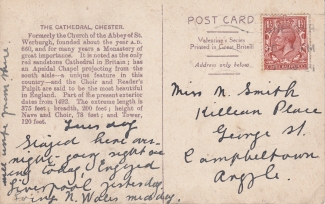 THE CATHEDRAL, CHESTER.
Formerly the Church of the Abbey of St.
Werburgh, founded about the year a.d.
660, and for many years a Monastery of
great importance. It is noted as the only
red sandstone Cathedral in Britain; has
an Apsidal Chapel projecting from the
south aisle—a unique feature in this
country—and the Choir and Reader's
Pulpit are said to be the most beautiful
in England. Part of the present exterior
dates from 1492. The extreme length is
375 feet; breadth, 200 feet; height of
Nave and Choir, 78 feet; and Tower,
120 feet.
Tues day
Stayed here
night going right on
today. Enjoyed
Liverpool yesterday.
N. Wales midday.
will write from
POST CARD.
Valentine's Series
Printed in Great Britain
Address only below.
Miss M. Smith
Killean Place
George St.
Campbeltown
Argyle.